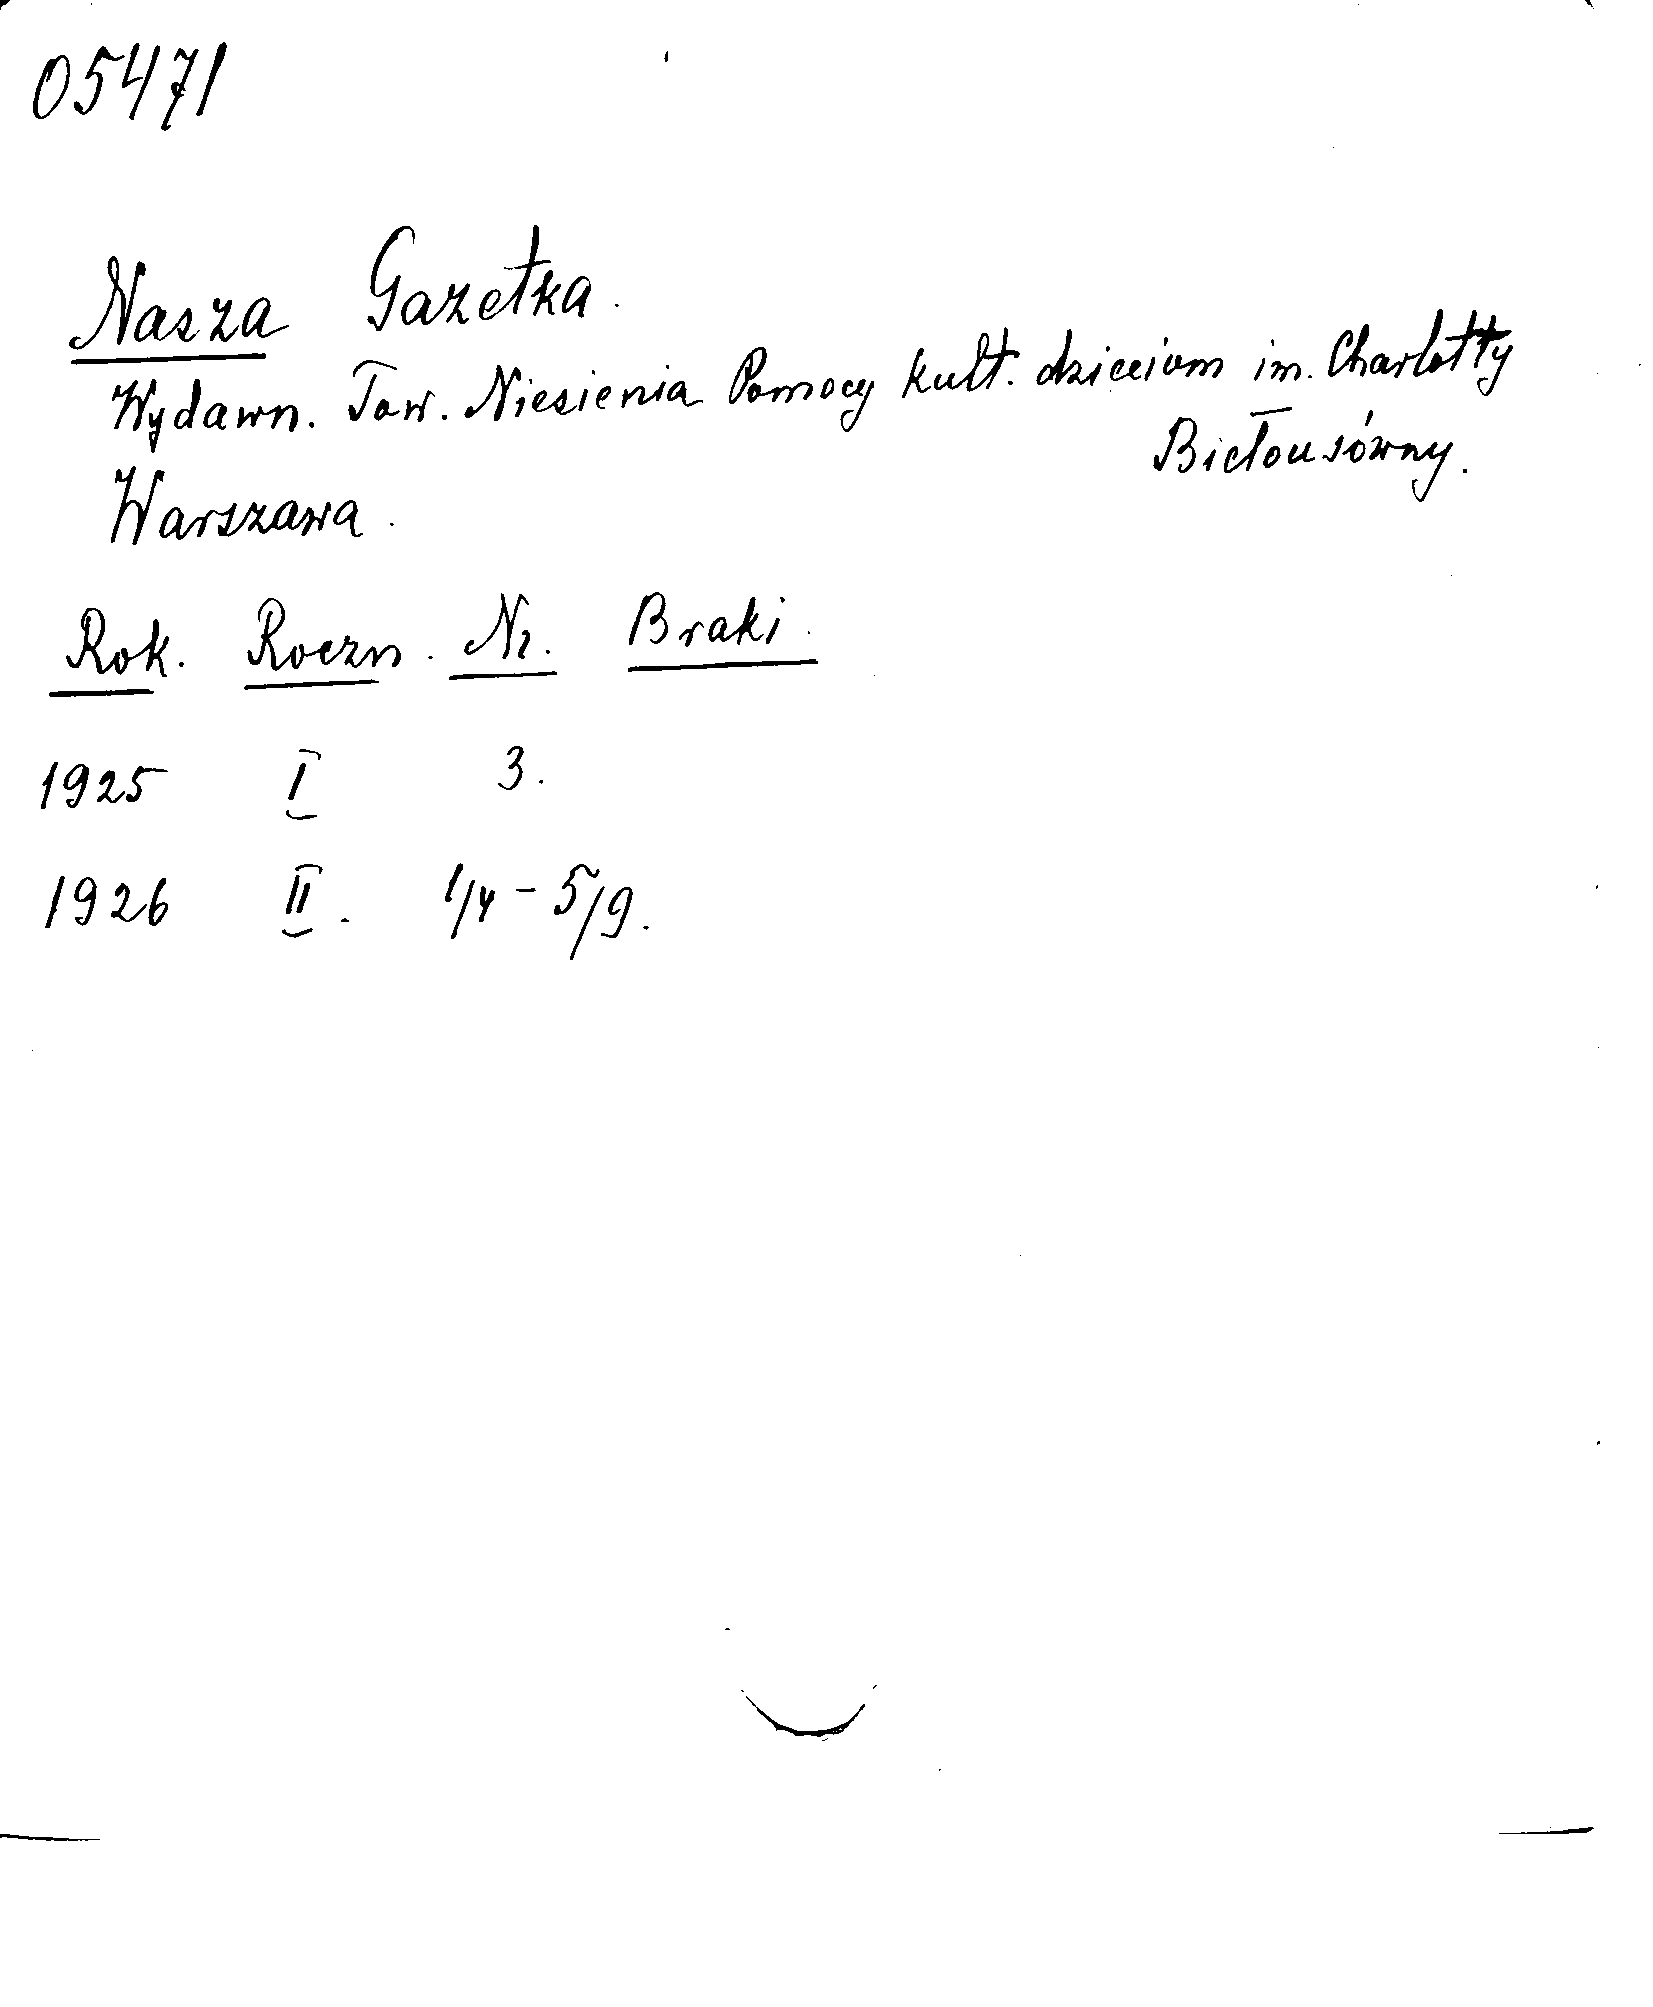 05471
Nasza Gazetka.
Wydawn. Tow. Niesienia Pomocy kult. dzieciom im. Charlotty
Biełousówny.
Warszawa.
Rok. Roczn. Nr. Braki.
1925 I 3.
1926 II. 1/4 - 5/9.